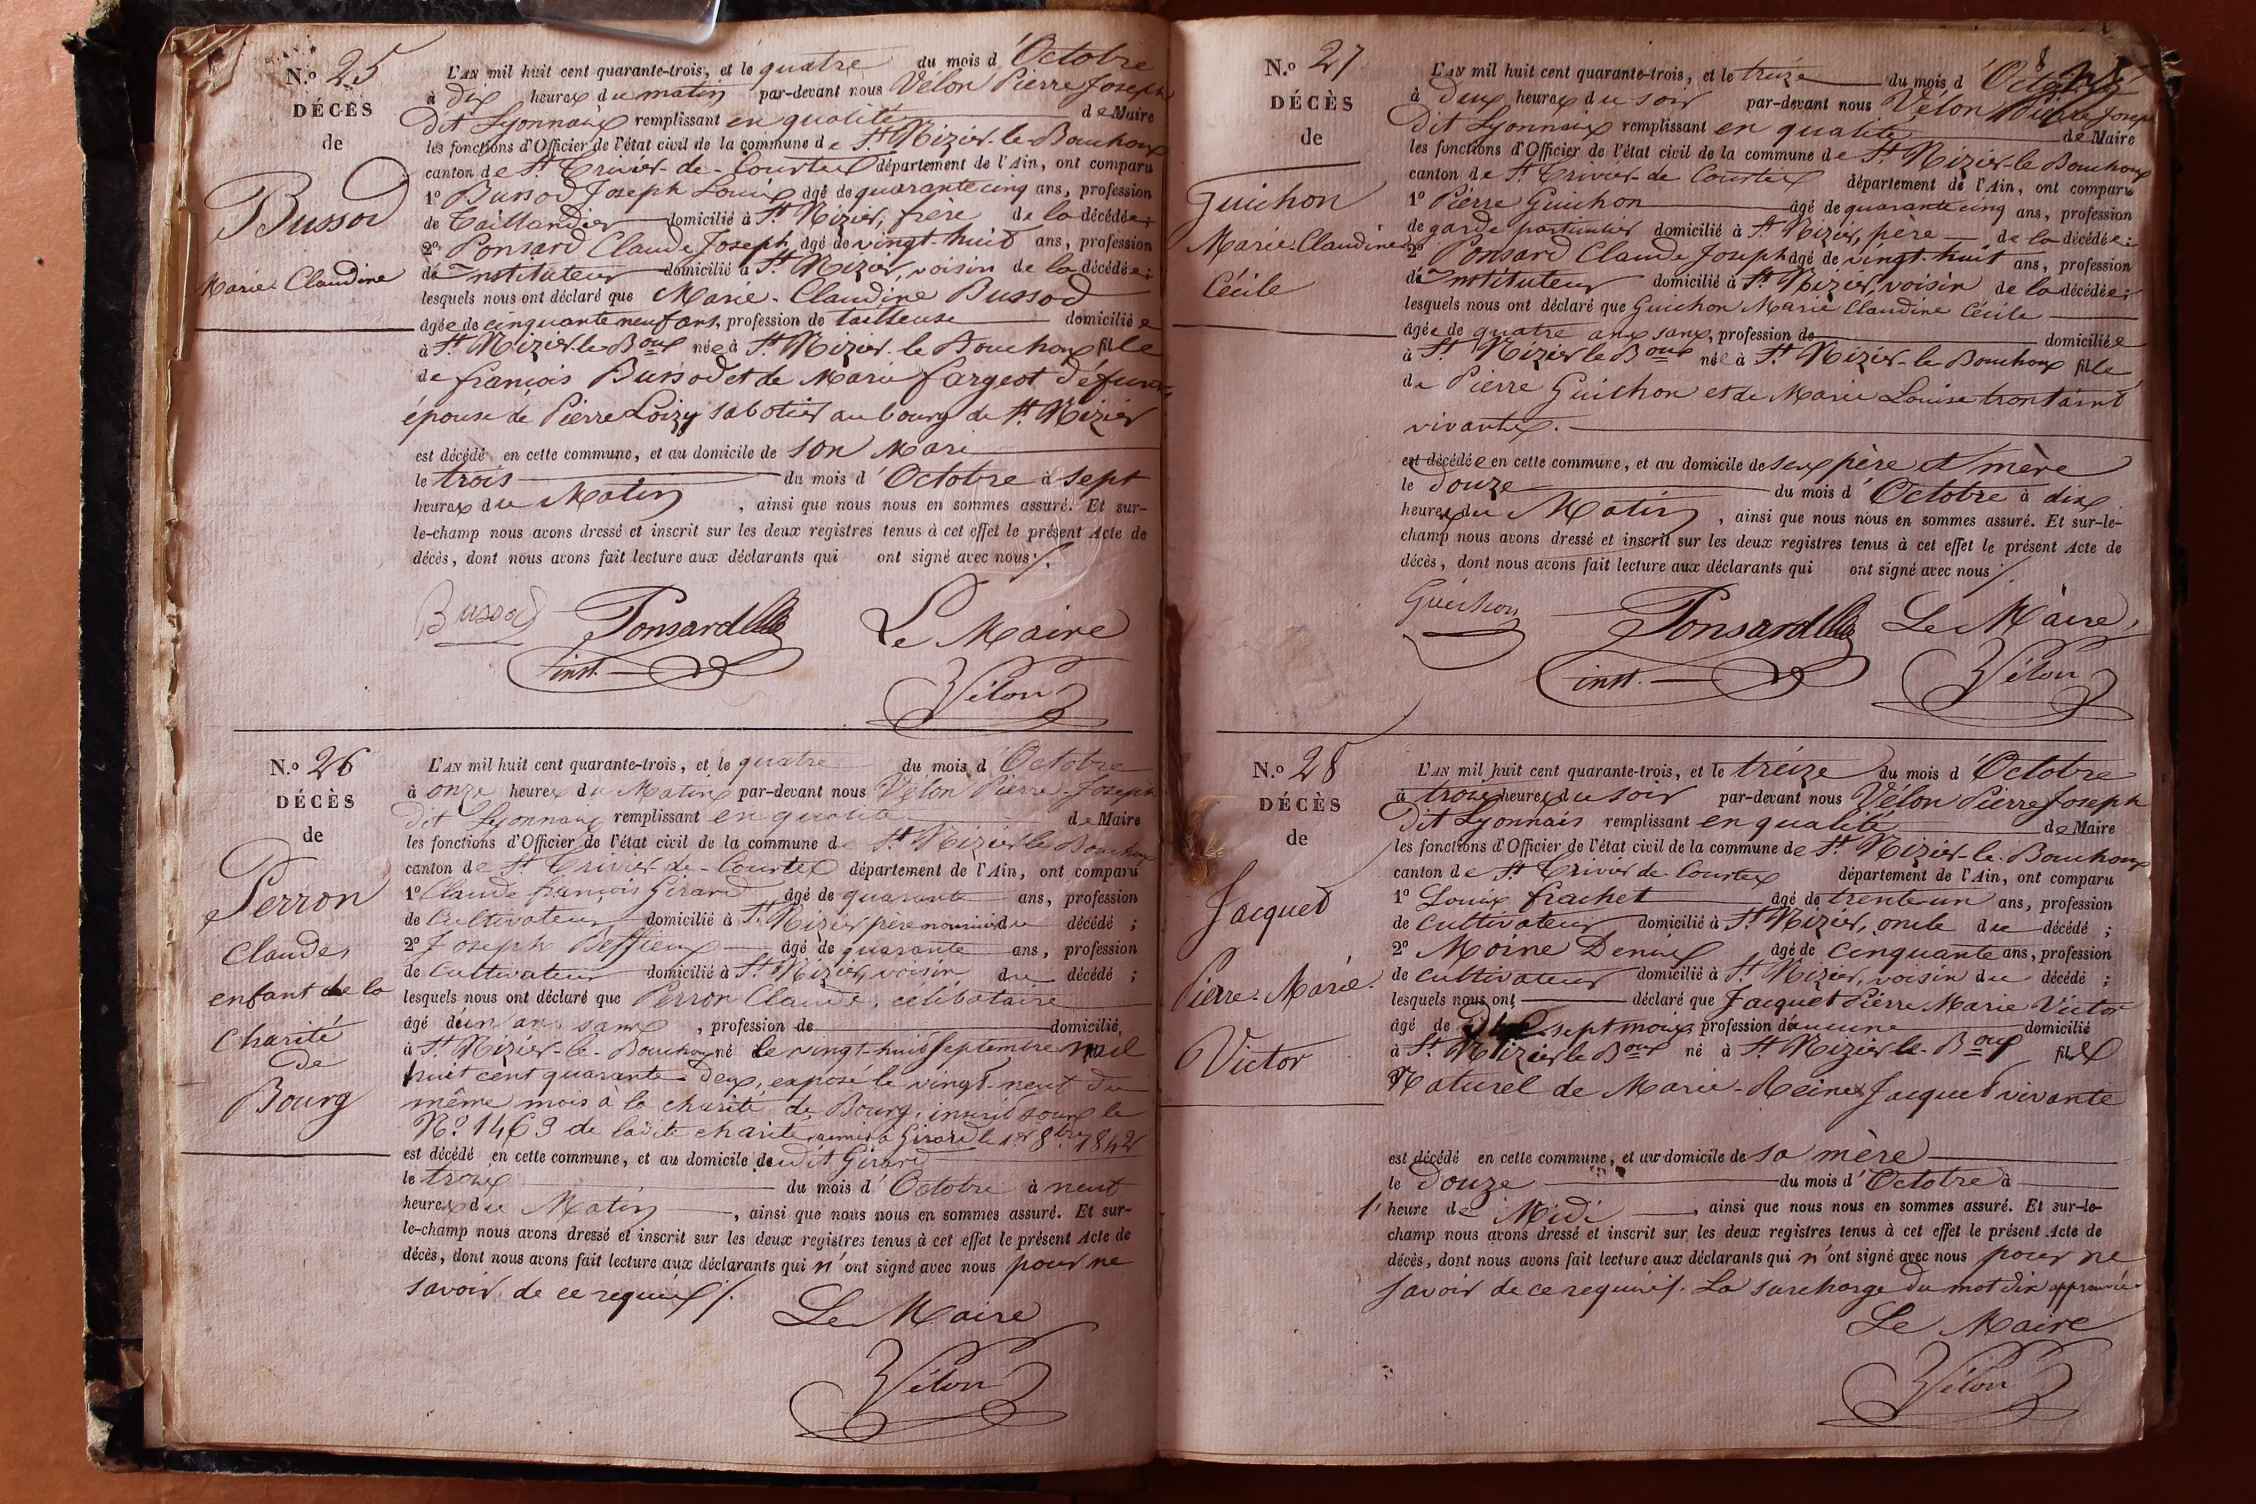 N.o 25
DÉCÈS
de
Bussod
Marie-Claudine
L'AN mil huit cent quarante-trois, et le quatre du mois d'Octobre
à dix heures du matin par-devant nous Vélon Pierre Joseph
dit Lyonnais remplissant en qualité de Maire
les fonctions d'Officier de l'état civil de la commune de St. Nizier-le-Bouchoux
canton de St. Trivier-de-Courtes département de l'Ain, ont comparu
1o Bussod Joseph Louis âgé de quarante cinq ans, profession
de Taillandier domicilié à St. Nizier, frère de la décédée;
2o Ponsard Claude Joseph âgé de vingt-huit ans, profession
de Instituteur domicilié à St. Nizier, voisin de la décédée;
lesquels nous ont déclaré que Marie-Claudine Bussod
âgée de cinquante neuf ans, profession de tailleuse domiciliée
à St. Nizier-le-Boux née à St. Nizier-le Bouchoux fille
de françois Bussod et de Marie fargeot défunts,
épouse de Pierre Loizy sabotier au bourg de St. Nizier
est décédé en cette commune, et au domicile de son Mari
le trois du mois d'Octobre à sept
heures du Matin, ainsi que nous nous en sommes assuré. Et sur-
le-champ nous avons dressé et inscrit sur les deux registres tenus à cet effet le présent Acte de
décès, dont nous avons fait lecture aux déclarants qui ont signé avec nous ./.
Bussod Ponsard Le Maire
inst. Vélon
N.o 26
DÉCÈS
de
Perron
Claude,
enfant de la
Charité
de
Bourg
L'AN mil huit cent quarante-trois, et le quatre du mois d'Octobre
à onze heures du Matin par-devant nous Vélon Pierre-Joseph
dit Lyonnais remplissant en qualité de Maire
les fonctions d'Officier de l'état civil de la commune de St. Nizier-le Bouchoux
canton de St. Trivier-de-Courtes département de l'Ain, ont comparu
1o Claude françois Girard âgé de quarante ans, profession
de Cultivateur domicilié à St. Nizier père nourricier du décédé;
2o Joseph âgé de quarante ans, profession
de Cultivateur domicilié à St. Nizier, voisin du décédé;
lesquels nous ont déclaré que Perron Claude, célibataire
âgé d'un an sans, profession de domicilié,
à St. Nizier-le-Bouchoux né le vingt-huit Septembre mil
huit cent quarante-deux, exposé le vingt-neuf du
même mois à la charité de Bourg, inscrit sous le
No. 1463 de ladite charité, remis à Girard le 1er 8bre 1842
est décédé en cette commune, et au domicile dudit Girard
le trois du mois d'Octobre à neuf
heures du Matin, ainsi que nous nous en sommes assuré. Et sur-
le-champ nous avons dressé et inscrit sur les deux registres tenus à cet effet le présent Acte de
décès, dont nous avons fait lecture aux déclarants qui n'ont signé avec nous pour ne
savoir, de ce requis ./.
Le Maire
Vélon
N.o 27
DÉCÈS
de
Guichon
Marie-Claudine
Cécile
L'AN mil huit cent quarante-trois, et le treize du mois d'Octobre
à deux heures du soir par-devant nous Vélon Pierre Joseph
dit Lyonnais remplissant en qualité de Maire
les fonctions d'Officier de l'état civil de la commune de St. Nizier-le Bouchoux
canton de St. Trivier-de Courtes département de l'Ain, ont comparu
1o Pierre Guichon âgé de quarante cinq ans, profession
de garde particulier domicilié à St. Nizier, père de la décédée;
2o Ponsard Claude Joseph âgé de vingt-huit ans, profession
de Instituteur domicilié à St. Nizier, voisin de la décédée;
lesquels nous ont déclaré que Guichon Marie Claudine Cécile
âgée de quatre ans sans, profession de domiciliée
à St. Nizier le Boux née à St. Nizier-le Bouchoux fille
de Pierre Guichon et de Marie Louise
vivants.
est décédée en cette commune, et au domicile de ses père et mère
le douze du mois d'Octobre à dix
heures du Matin, ainsi que nous nous en sommes assuré. Et sur-le-
champ nous avons dressé et inscrit sur les deux registres tenus à cet effet le présent Acte de
décès, dont nous avons fait lecture aux déclarants qui ont signé avec nous ./.
Guichon Ponsard Le Maire,
inst. Vélon
N.o 28
DÉCÈS
de
Jacquet
Pierre-Marie-
Victor
L'AN mil huit cent quarante-trois, et le treize du mois d'Octobre
à trois heures du soir par-devant nous Vélon Pierre Joseph
dit Lyonnais remplissant en qualité de Maire
les fonctions d'Officier de l'état civil de la commune de St. Nizier-le-Bouchoux
canton de St. Trivier de-Courtes département de l'Ain, ont comparu
1o Louis frachet âgé de trente-un ans, profession
de cultivateur domicilié à St. Nizier, oncle du décédé;
2o Moine Denis âgé de cinquante ans, profession
de cultivateur domicilié à St. Nizier, voisin du décédé;
lesquels nous ont déclaré que Jacquet Pierre Marie Victor
âgé de dix sept mois, profession d'aucune domicilié
à St. Nizier le Boux né à St. Nizier le-Boux fils
Naturel de Marie-Reine Jacquet vivante
est décédé en cette commune, et au domicile de sa mère
le douze du mois d'Octobre à
1' heure de Midi, ainsi que nous nous en sommes assuré. Et sur-le-
champ nous avons dressé et inscrit sur les deux registres tenus à cet effet le présent Acte de
décès, dont nous avons fait lecture aux déclarants qui n'ont signé avec nous pour ne
savoir de ce requis ./. La surcharge du mot dix approuvée
Le Maire
Vélon